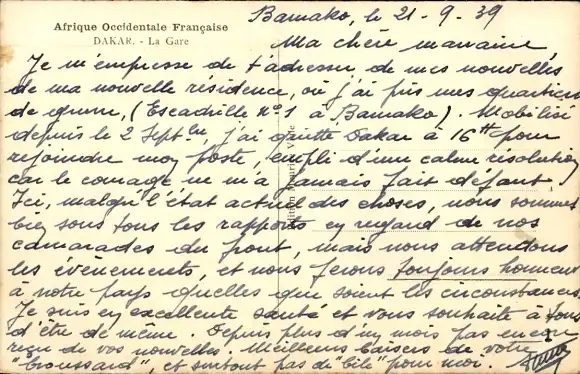 Afrique Occidentale Française
DAKAR. - La Gare
Bamako, le 21-9-39
Ma chère marraine,
Je m'empresse de t'adresser de mes nouvelles
de ma nouvelle résidence, où j'ai pris mes quartiers
de guerre, (Escadrille n°1 à Bamako). Mobilisé
depuis le 2 Septbre, j'ai quitté Dakar à 16H pour
rejoindre mon poste, empli d'une calme résolution
car le courage ne m'a jamais fait défaut.
Ici, malgré l'état actuel des choses, nous sommes
bien sous tous les rapports en regard de nos
camarades du front, mais nous attendons
les évènements, et nous ferons toujours honneur
à notre pays quelles que soient les circonstances
Je suis en excellente santé et vous souhaite à tous
d'être de même. Depuis plus d'un mois pas encore
reçu de vos nouvelles. Meilleurs baisers de votre
"broussard", et surtout pas de "bile" pour moi.